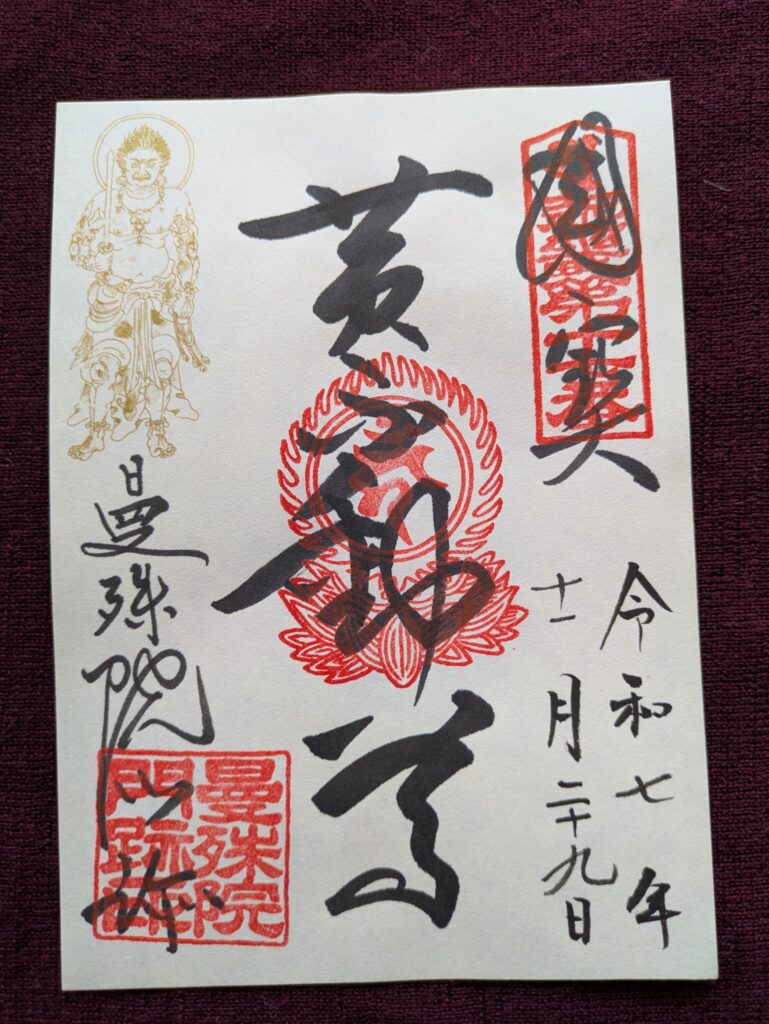 國寳
令和七年
十一月二十九日
黄不動尊
曼殊院門跡
曼殊院
門跡印